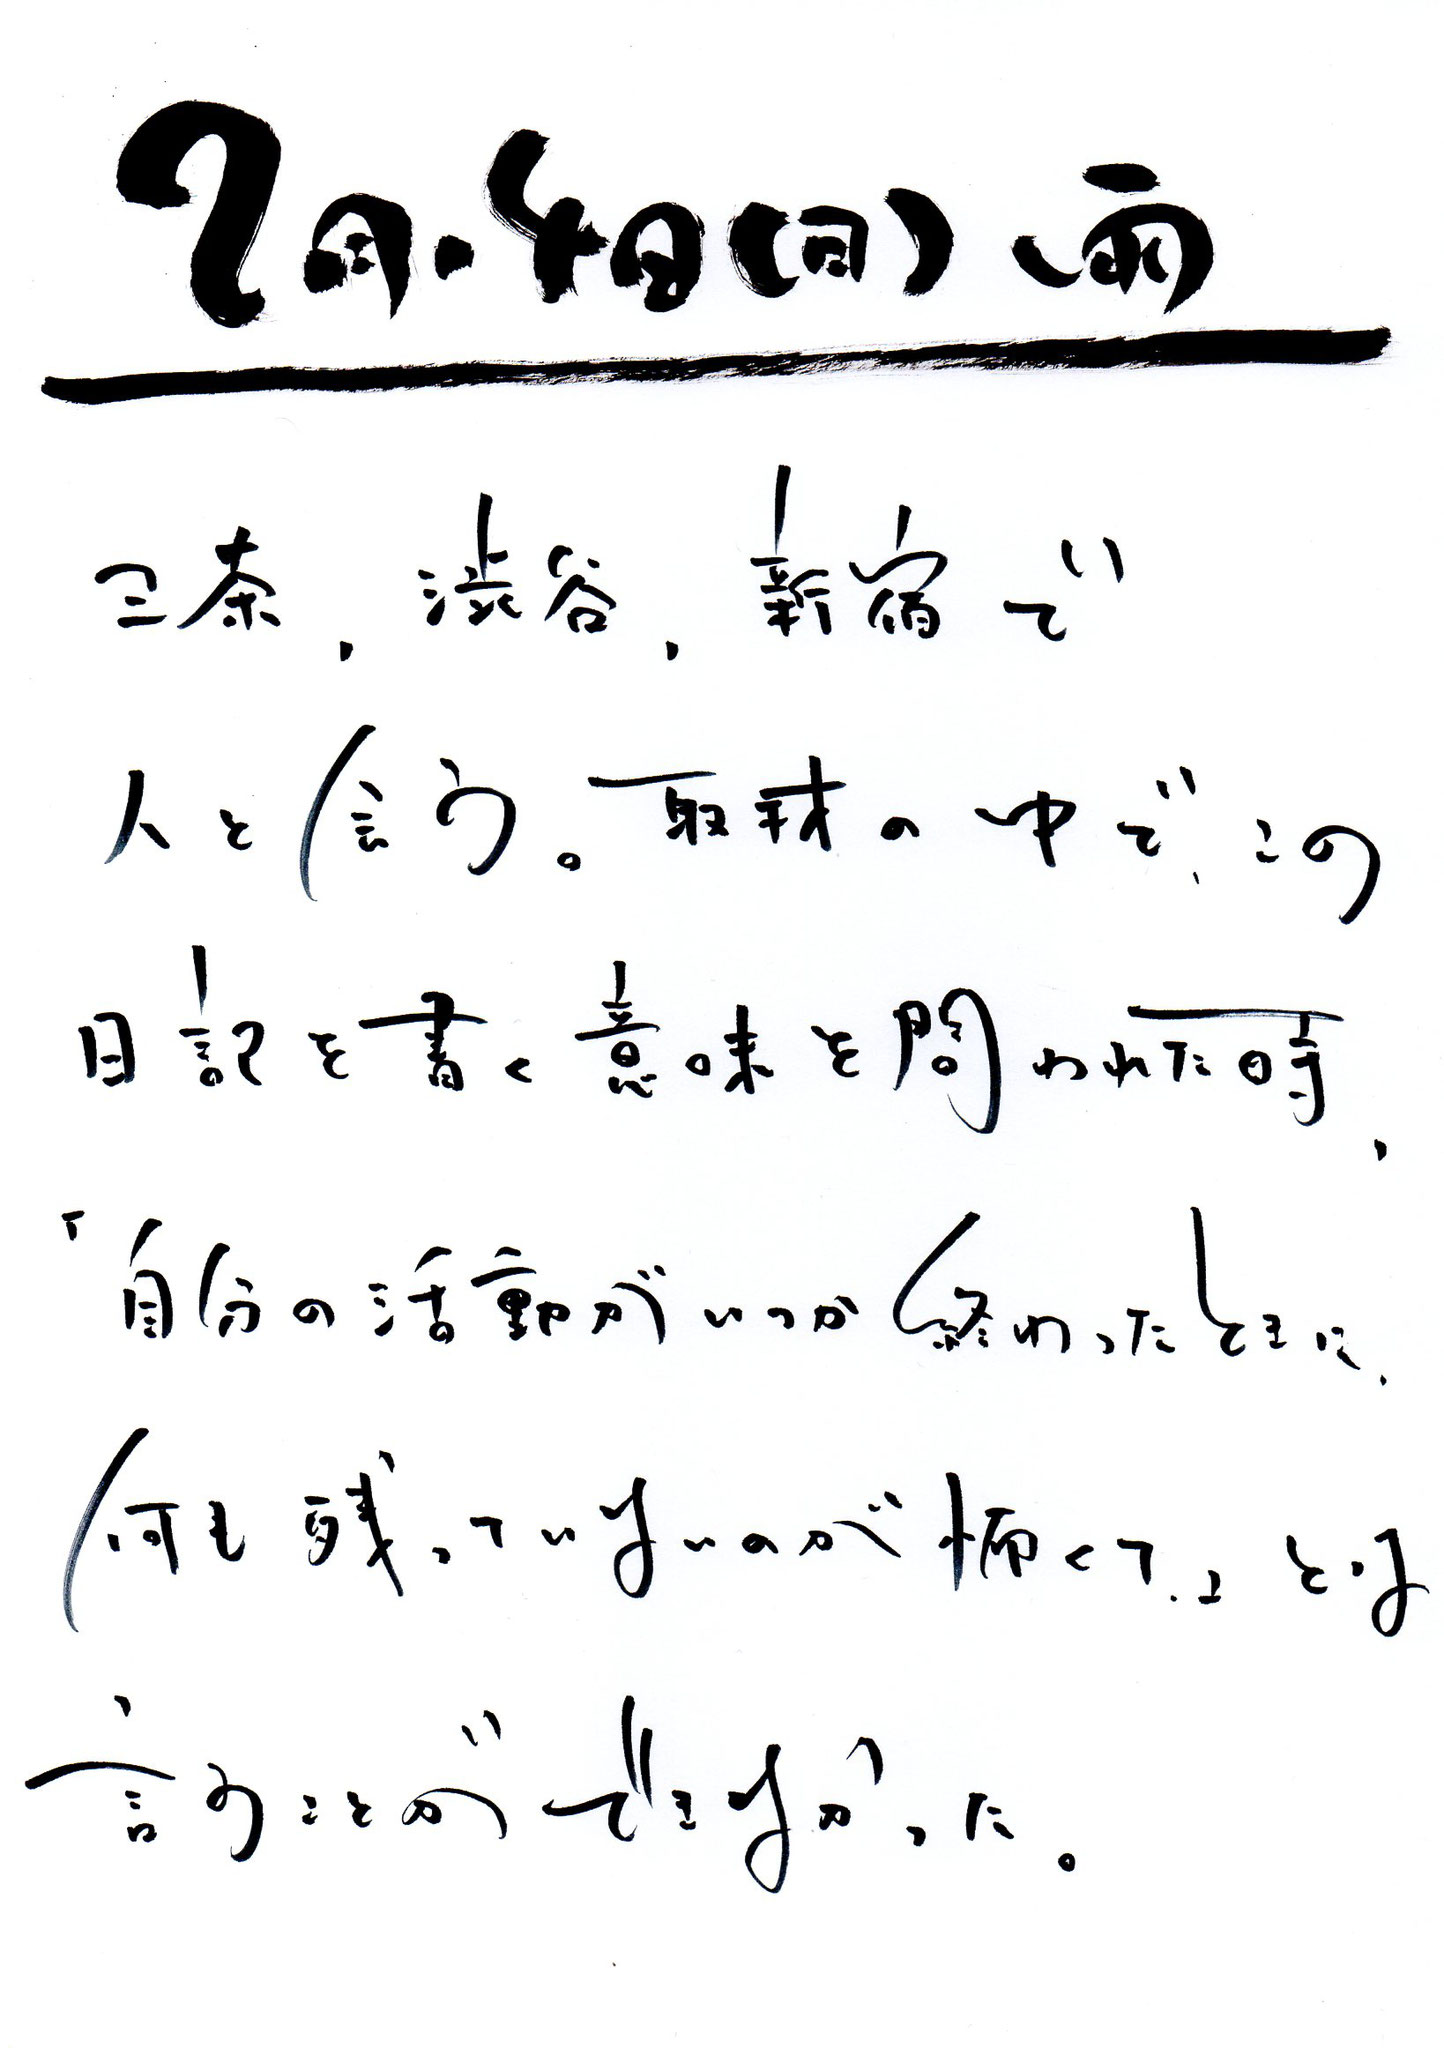 7月.4日(日) 雨
三茶、渋谷、新宿で
人と会う。取材の中で、この
日記を書く意味を問われた時、
「自分の活動がいつか終わったときに、
何も残っていないのが怖くて。」とは
言うことができなかった。